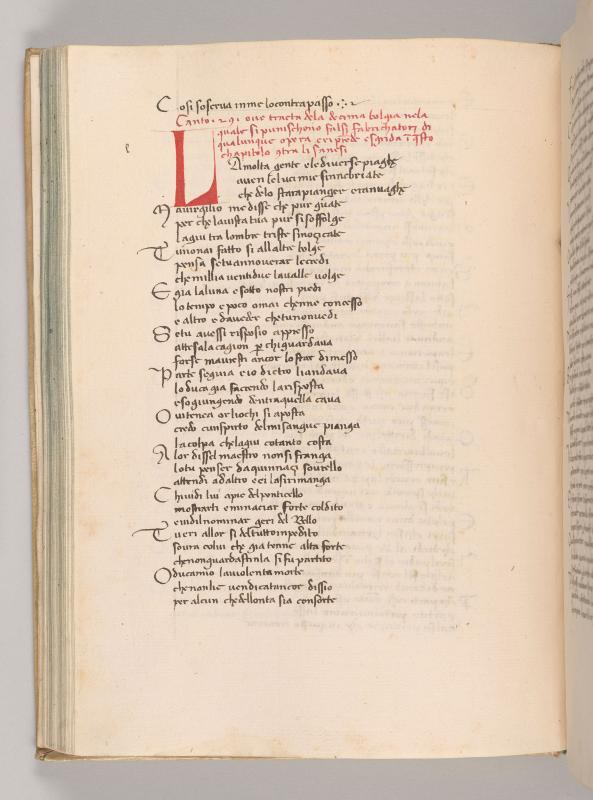 Cosi soserva inme locontrapasso
Canto 291 ove tracta dela decima bolgia nela
quale si punischono falsi fabrichatori di
qualunque opera e riprede e sgrida i questo
chapitolo 9tra li sanesi
Lamolta gente ele diverse piaghe
aven le luci mie sinnebriate
che delo stare apianger eran vaghe
Mavirgilio me disse che pur guate
per che lavista tua pur si soffolge
lagiu tra lombre triste smozicate
Tu non ai fatto si allaltre bolge
pensa setu annoverar le credi
che millia ventidue lavalle volge
E gia laluna e sotto nostri piedi
lo tempo e poco omai chenne concesso
e altro e daveder chetu non vedi
Setu avessi risposio appresso
attesala cagion per chi guardava
forse mavresti ancor lo star dimesso
Parte seguia e io dietro li andava
lo duca gia facendo larisposta
e sogiungendo dentraquella cava
Ovitenea or liochi si aposta
credo cunspirto delmi sangue pianga
la colpa chelagiu cotanto costa
Alor dissel maestro non si franga
lo tu penser daquinnaci sovrello
attendi adaltro e ei la si rimanga
Chividi lui apie del ponticello
mostrarti eminaciar forte coldito
e udil nominar geri del Bello
Tu eri allor si del tutto inpedito
sovra colui che gia tenne alta forte
che non guardasti inla si fu partito
O duca mio la violenta morte
che non lie vendicata ancor dissio
per alcun che dellonta sia consorte